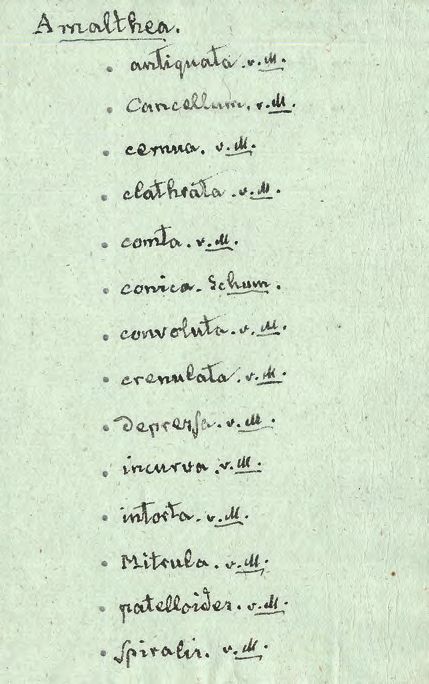 Amalthea.
antiquata. v. M.
Cancellum. v. M.
cernua. v. M.
clathrata. v. M.
comta. v. M.
conica. Schum.
convoluta. v. M.
crenulata. v. M.
depressa. v. M.
incurva. v. M.
intorta. v. M.
Mitrula. v. M.
patelloides. v. M.
spiralis. v. M.